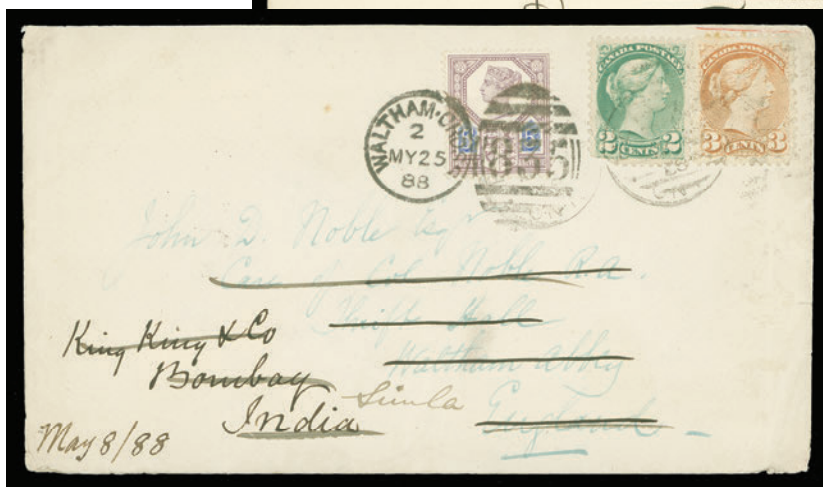 WALTHAM·CRO
2
MY 25
88
835
CANADA POSTAGE
2 CENTS 2
CANADA POSTAGE
3 CENTS 3
John D. Noble Esqr
Care of Col Noble R.A.
Thrift Hall
Waltham Abby
England
King King & Co
Bombay
India
Simla
May 8/88